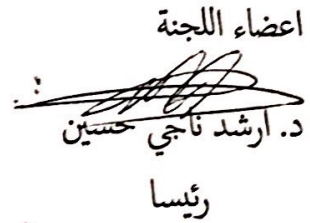 اعضاء اللجنة
د. ارشد ناجي حسين
رئيسا